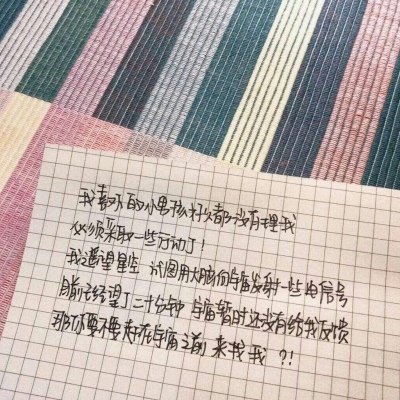 我喜欢的小男孩好久都没有理我
必须采取一些行动了!
我遥望星空 试图用大脑向宇宙发射一些电信号
目前已经望了二十分钟 宇宙暂时还没有给我反馈
那你要不要赶在宇宙之前 来找我 ?!